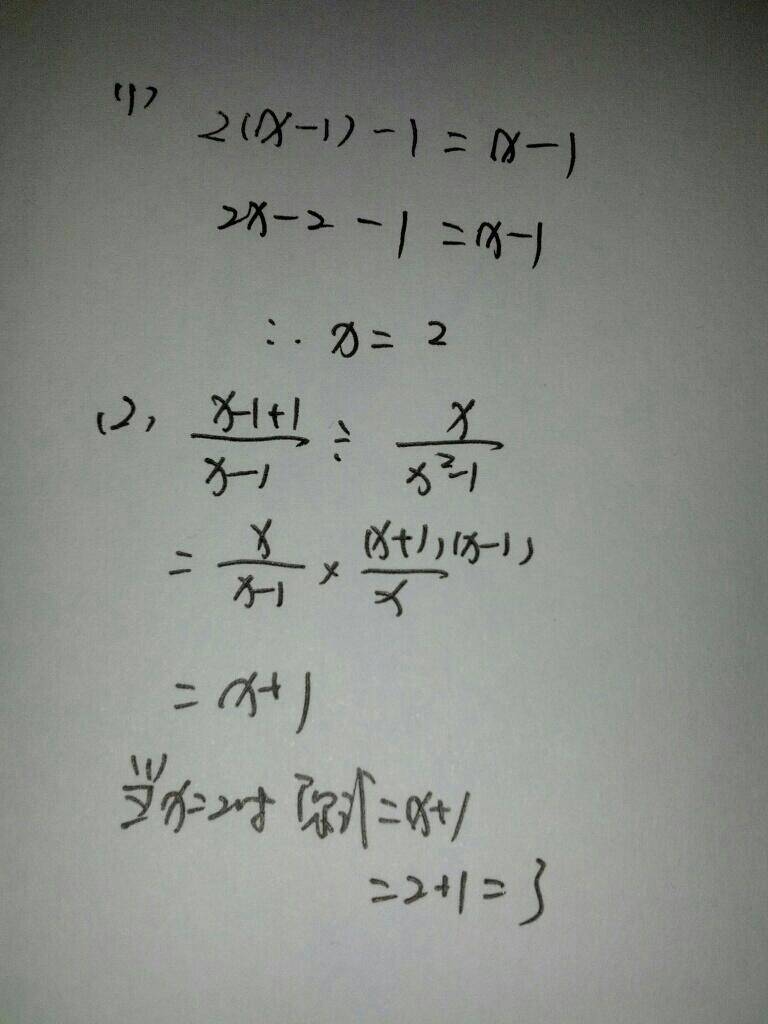 (1) 2(x-1)-1=x-1
2x-2-1=x-1
∴ x=2
(2) (x-1+1)/(x-1) ÷ x/(x²-1)
= x/(x-1) × (x+1)(x-1)/x
= x+1
当x=2时 原式=x+1
=2+1=3